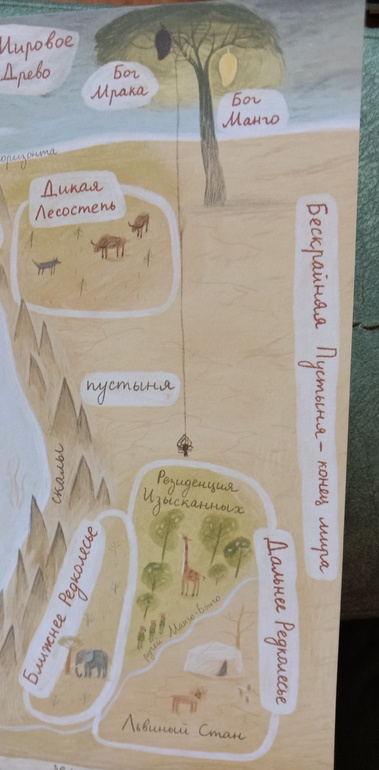 Мировое
Древо
Бог
Мрака
Бог
Манго
горизонта
Дикая
Лесостепь
Бескрайняя Пустыня – конец мира
пустыня
скалы
Резиденция
Изысканных
Ближнее Редколесье
Дальнее Редколесье
ручей Манго-Бонго
Львиный Стан